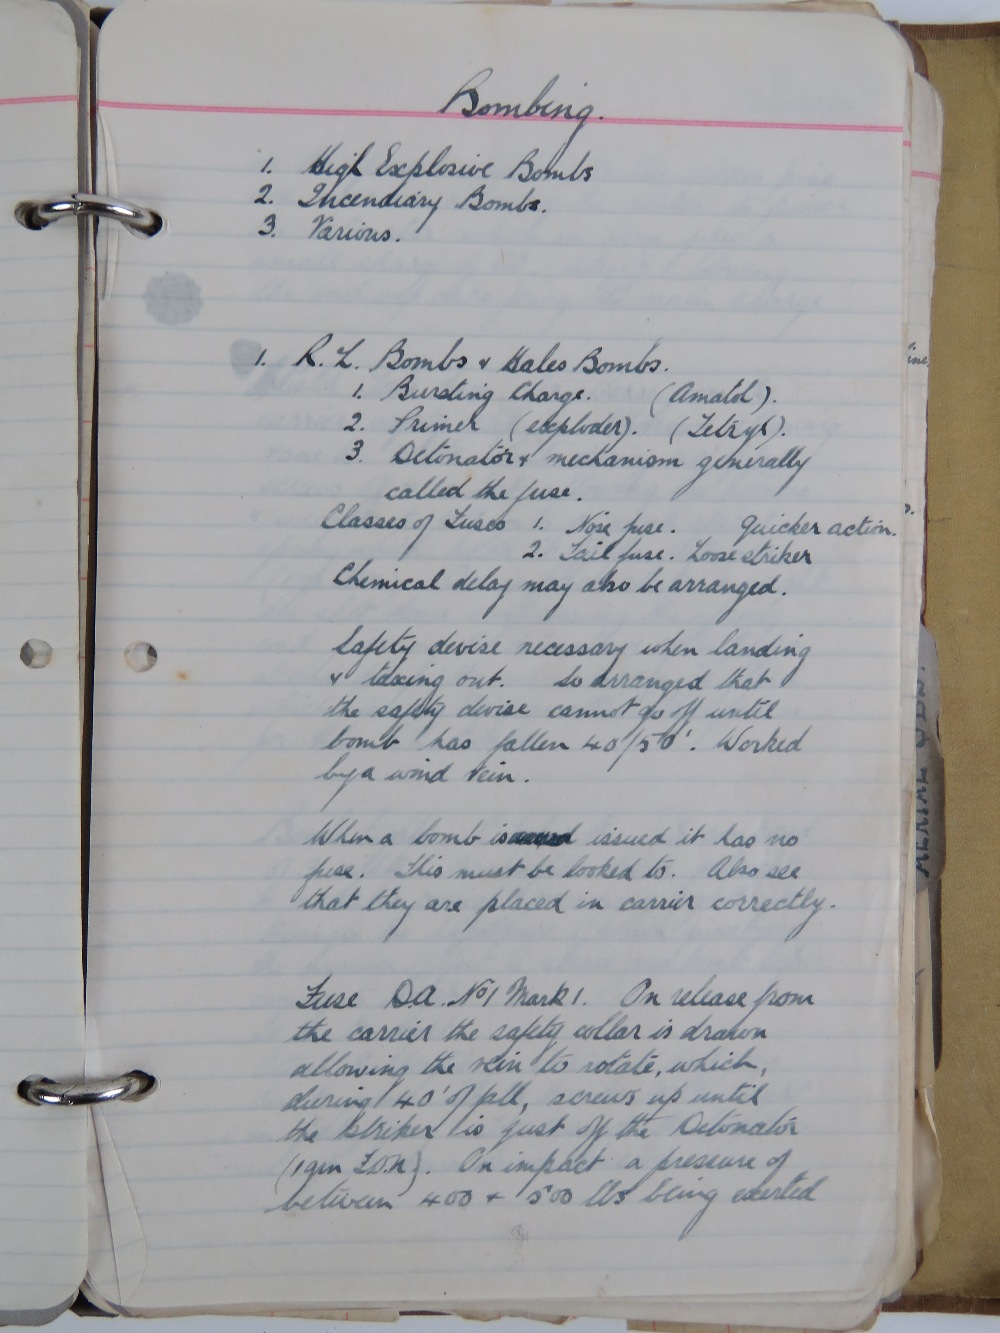 Bombing.
1. High Explosive Bombs
2. Incendiary Bombs.
3. Various.
1. R. L. Bombs & Hales Bombs.
1. Bursting Charge. (Amatol).
2. Primer (exploder). (Tetryl).
3. Detonator & mechanism generally
called the fuse.
Classes of Fuses 1. Nose fuse. Quicker action.
2. Tail fuse. Loose striker
Chemical delay may also be arranged.
Safety devise necessary when landing
& taxing out. So arranged that
the safety devise cannot go off until
bomb has fallen 40/50'. Worked
by a wind vein.
When a bomb is issued it has no
fuse. This must be looked to. Also see
that they are placed in carrier correctly.
Fuse D.A. No 1 Mark 1. On release from
the carrier the safety collar is drawn
allowing the vein to rotate, which,
during 40' of fall, screws up until
the striker is just off the Detonator
(1 gm). On impact a pressure of
between 400 & 500 lbs being exerted